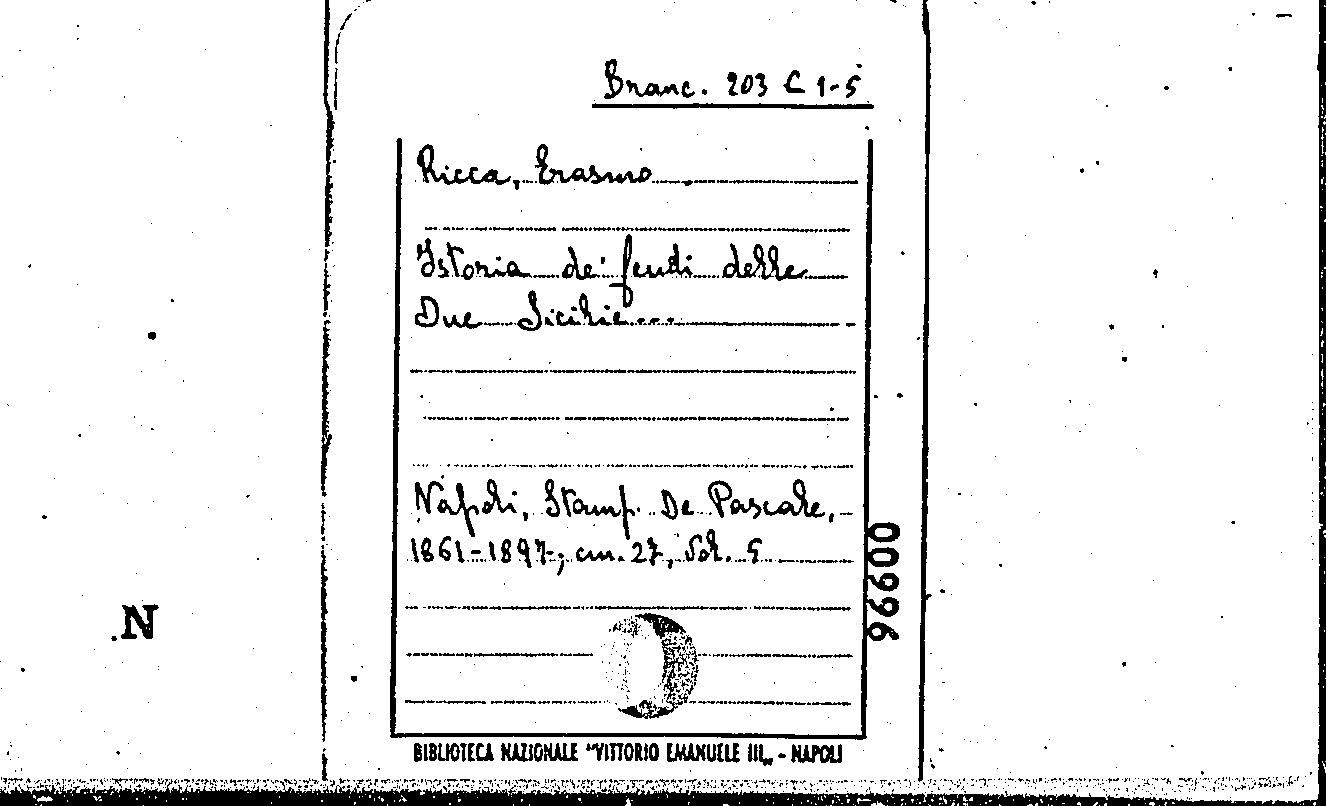 Branc. 203 C 1-5
Ricca, Erasmo.
Istoria de' feudi delle
Due Sicilie...
Napoli, Stamp. De Pascale,
1861-1897; cm. 27, Vol. 5
00966
.N
BIBLIOTECA NAZIONALE "VITTORIO EMANUELE III„ - NAPOLI